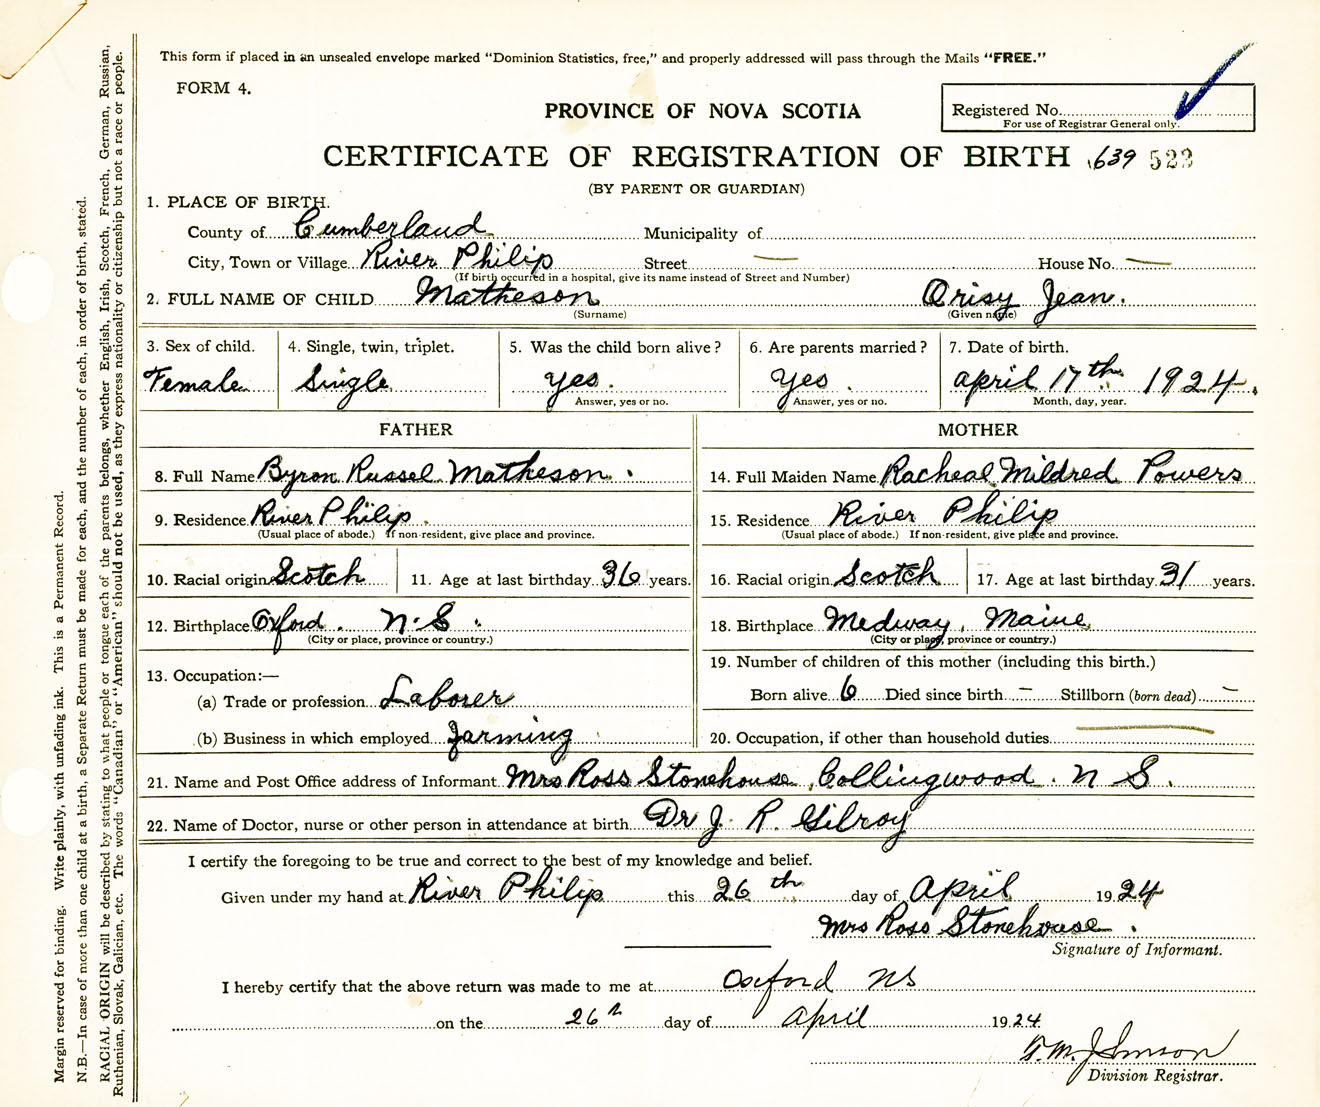 This form if placed in an unsealed envelope marked "Dominion Statistics, free," and properly addressed will pass through the Mails "FREE."
FORM 4.
PROVINCE OF NOVA SCOTIA
Registered No.
For use of Registrar General only.
CERTIFICATE OF REGISTRATION OF BIRTH 639 523
(BY PARENT OR GUARDIAN)
1. PLACE OF BIRTH.
County of Cumberland Municipality of
City, Town or Village River Philip Street — House No. —
(If birth occurred in a hospital, give its name instead of Street and Number)
2. FULL NAME OF CHILD Matheson Orisy Jean.
(Surname) (Given name)
3. Sex of child. 4. Single, twin, triplet. 5. Was the child born alive? 6. Are parents married? 7. Date of birth.
Female Single Yes. Yes. April 17th 1924.
Answer, yes or no. Answer, yes or no. Month, day, year.
FATHER MOTHER
8. Full Name Byron Russel Matheson. 14. Full Maiden Name Racheal Mildred Powers
9. Residence River Philip. 15. Residence River Philip
(Usual place of abode.) If non-resident, give place and province. (Usual place of abode.) If non-resident, give place and province.
10. Racial origin Scotch 11. Age at last birthday 36 years. 16. Racial origin Scotch 17. Age at last birthday 31 years.
12. Birthplace Oxford. N.S. 18. Birthplace Medway, Maine
(City or place, province or country.) (City or place, province or country.)
13. Occupation:— 19. Number of children of this mother (including this birth.)
(a) Trade or profession Laborer Born alive 6 Died since birth — Stillborn (born dead) —
(b) Business in which employed Farming 20. Occupation, if other than household duties —
21. Name and Post Office address of Informant Mrs Ross Stonehouse, Collingwood. N S.
22. Name of Doctor, nurse or other person in attendance at birth Dr J. R. Gilroy
I certify the foregoing to be true and correct to the best of my knowledge and belief.
Given under my hand at River Philip this 26th day of April 1924
Mrs Ross Stonehouse.
Signature of Informant.
I hereby certify that the above return was made to me at Oxford NS
on the 26th day of April 1924
Johnson
Division Registrar.
Margin reserved for binding. Write plainly, with unfading ink. This is a Permanent Record.
N.B.—In case of more than one child at a birth, a Separate Return must be made for each, and the number of each, in order of birth, stated.
RACIAL ORIGIN will be described by stating to what people or tongue each of the parents belongs, whether English, Irish, Scotch, French, German, Russian,
Ruthenian, Slovak, Galician, etc. The words "Canadian" or "American" should not be used, as they express nationality or citizenship but not a race or people.